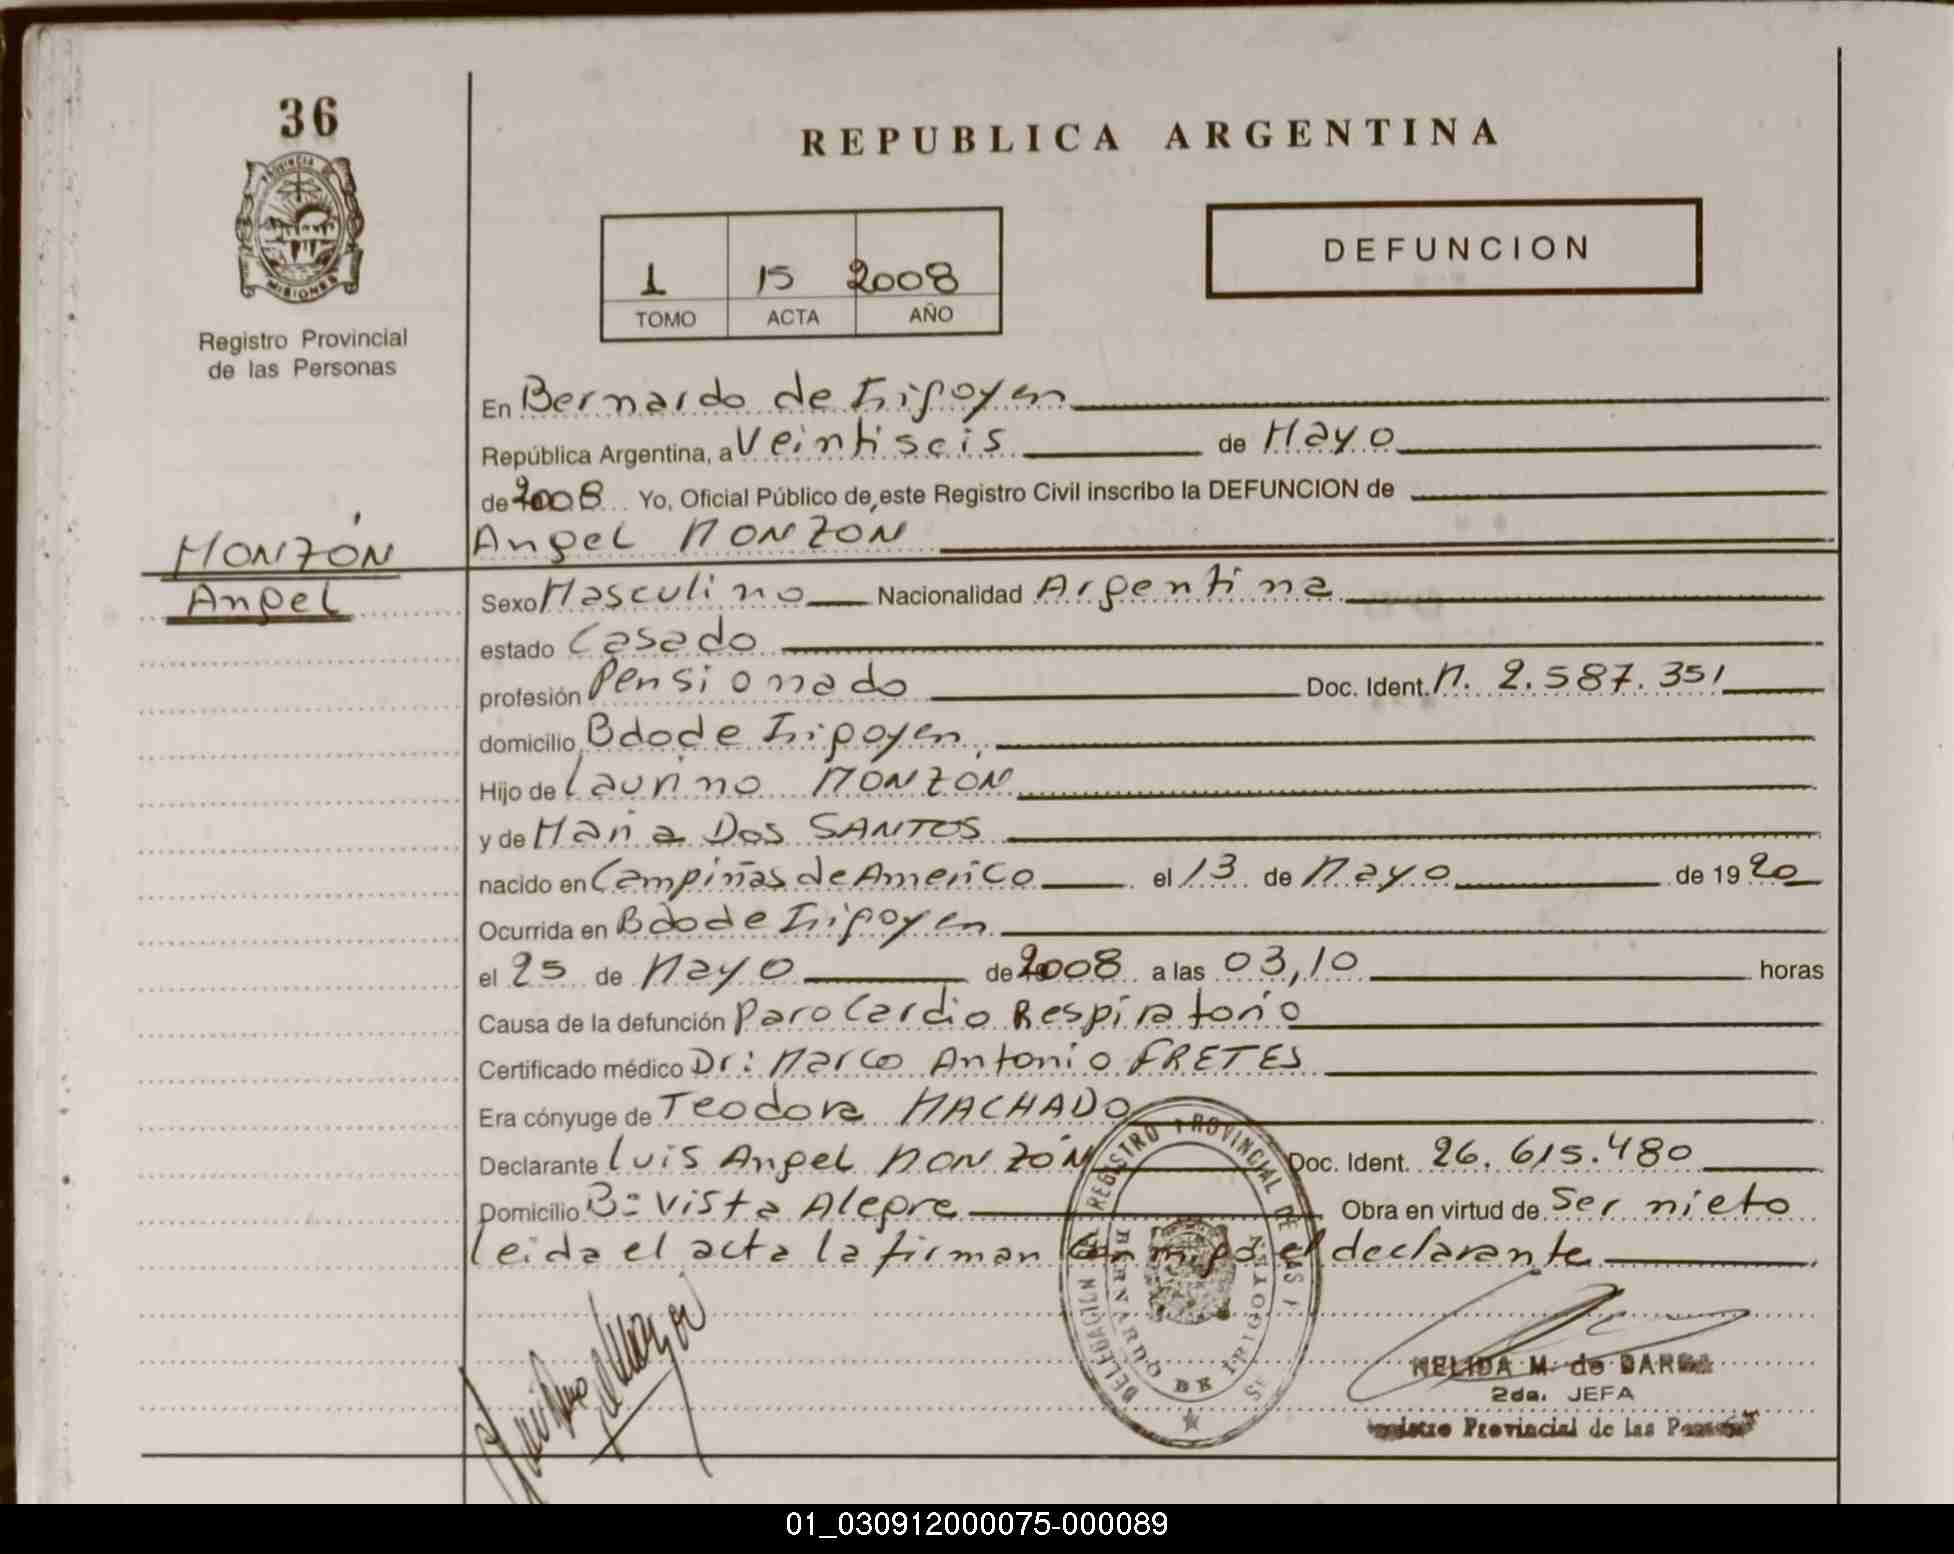 36
PROVINCIA DE
MISIONES
Registro Provincial
de las Personas
REPUBLICA ARGENTINA
1 15 2008
TOMO ACTA AÑO
DEFUNCION
En Bernardo de Irigoyen
República Argentina, a Veintiseis de Mayo
de 2008 Yo, Oficial Público de este Registro Civil inscribo la DEFUNCION de
Angel MONZON
MONZÓN
Angel
Sexo Masculino Nacionalidad Argentina
estado Casado
profesión Pensionado Doc. Ident. M. 2.587.351
domicilio Bdo de Irigoyen
Hijo de Laurino MONZÓN
y de Maria Dos SANTOS
nacido en Campiñas de Americo el 13 de Mayo de 1920
Ocurrida en Bdo de Irigoyen
el 25 de Mayo de 2008 a las 03,10 horas
Causa de la defunción Paro Cardio Respiratorio
Certificado médico Dr: Marco Antonio FRETES
Era cónyuge de Teodora MACHADO
Declarante Luis Angel MONZÓN Doc. Ident. 26.615.480
Domicilio B= Vista Alegre Obra en virtud de Ser nieto
leida el acta la firman Conmigo el declarante
DELEGACION REGISTRO PROVINCIAL DE LAS
BERNARDO DE IRIGOYEN
NELIDA M. de
2da. JEFA
Registro Provincial de las Personas
01_030912000075-000089